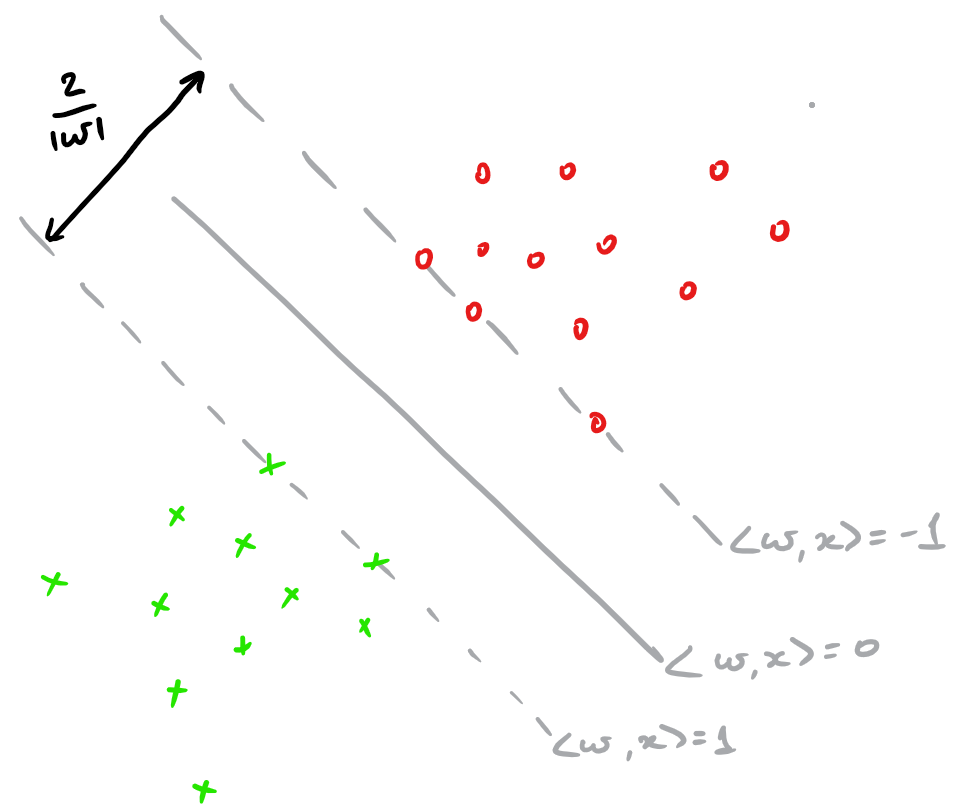 2
|w|
<w,x>=-1
<w,x>=0
<w,x>=1